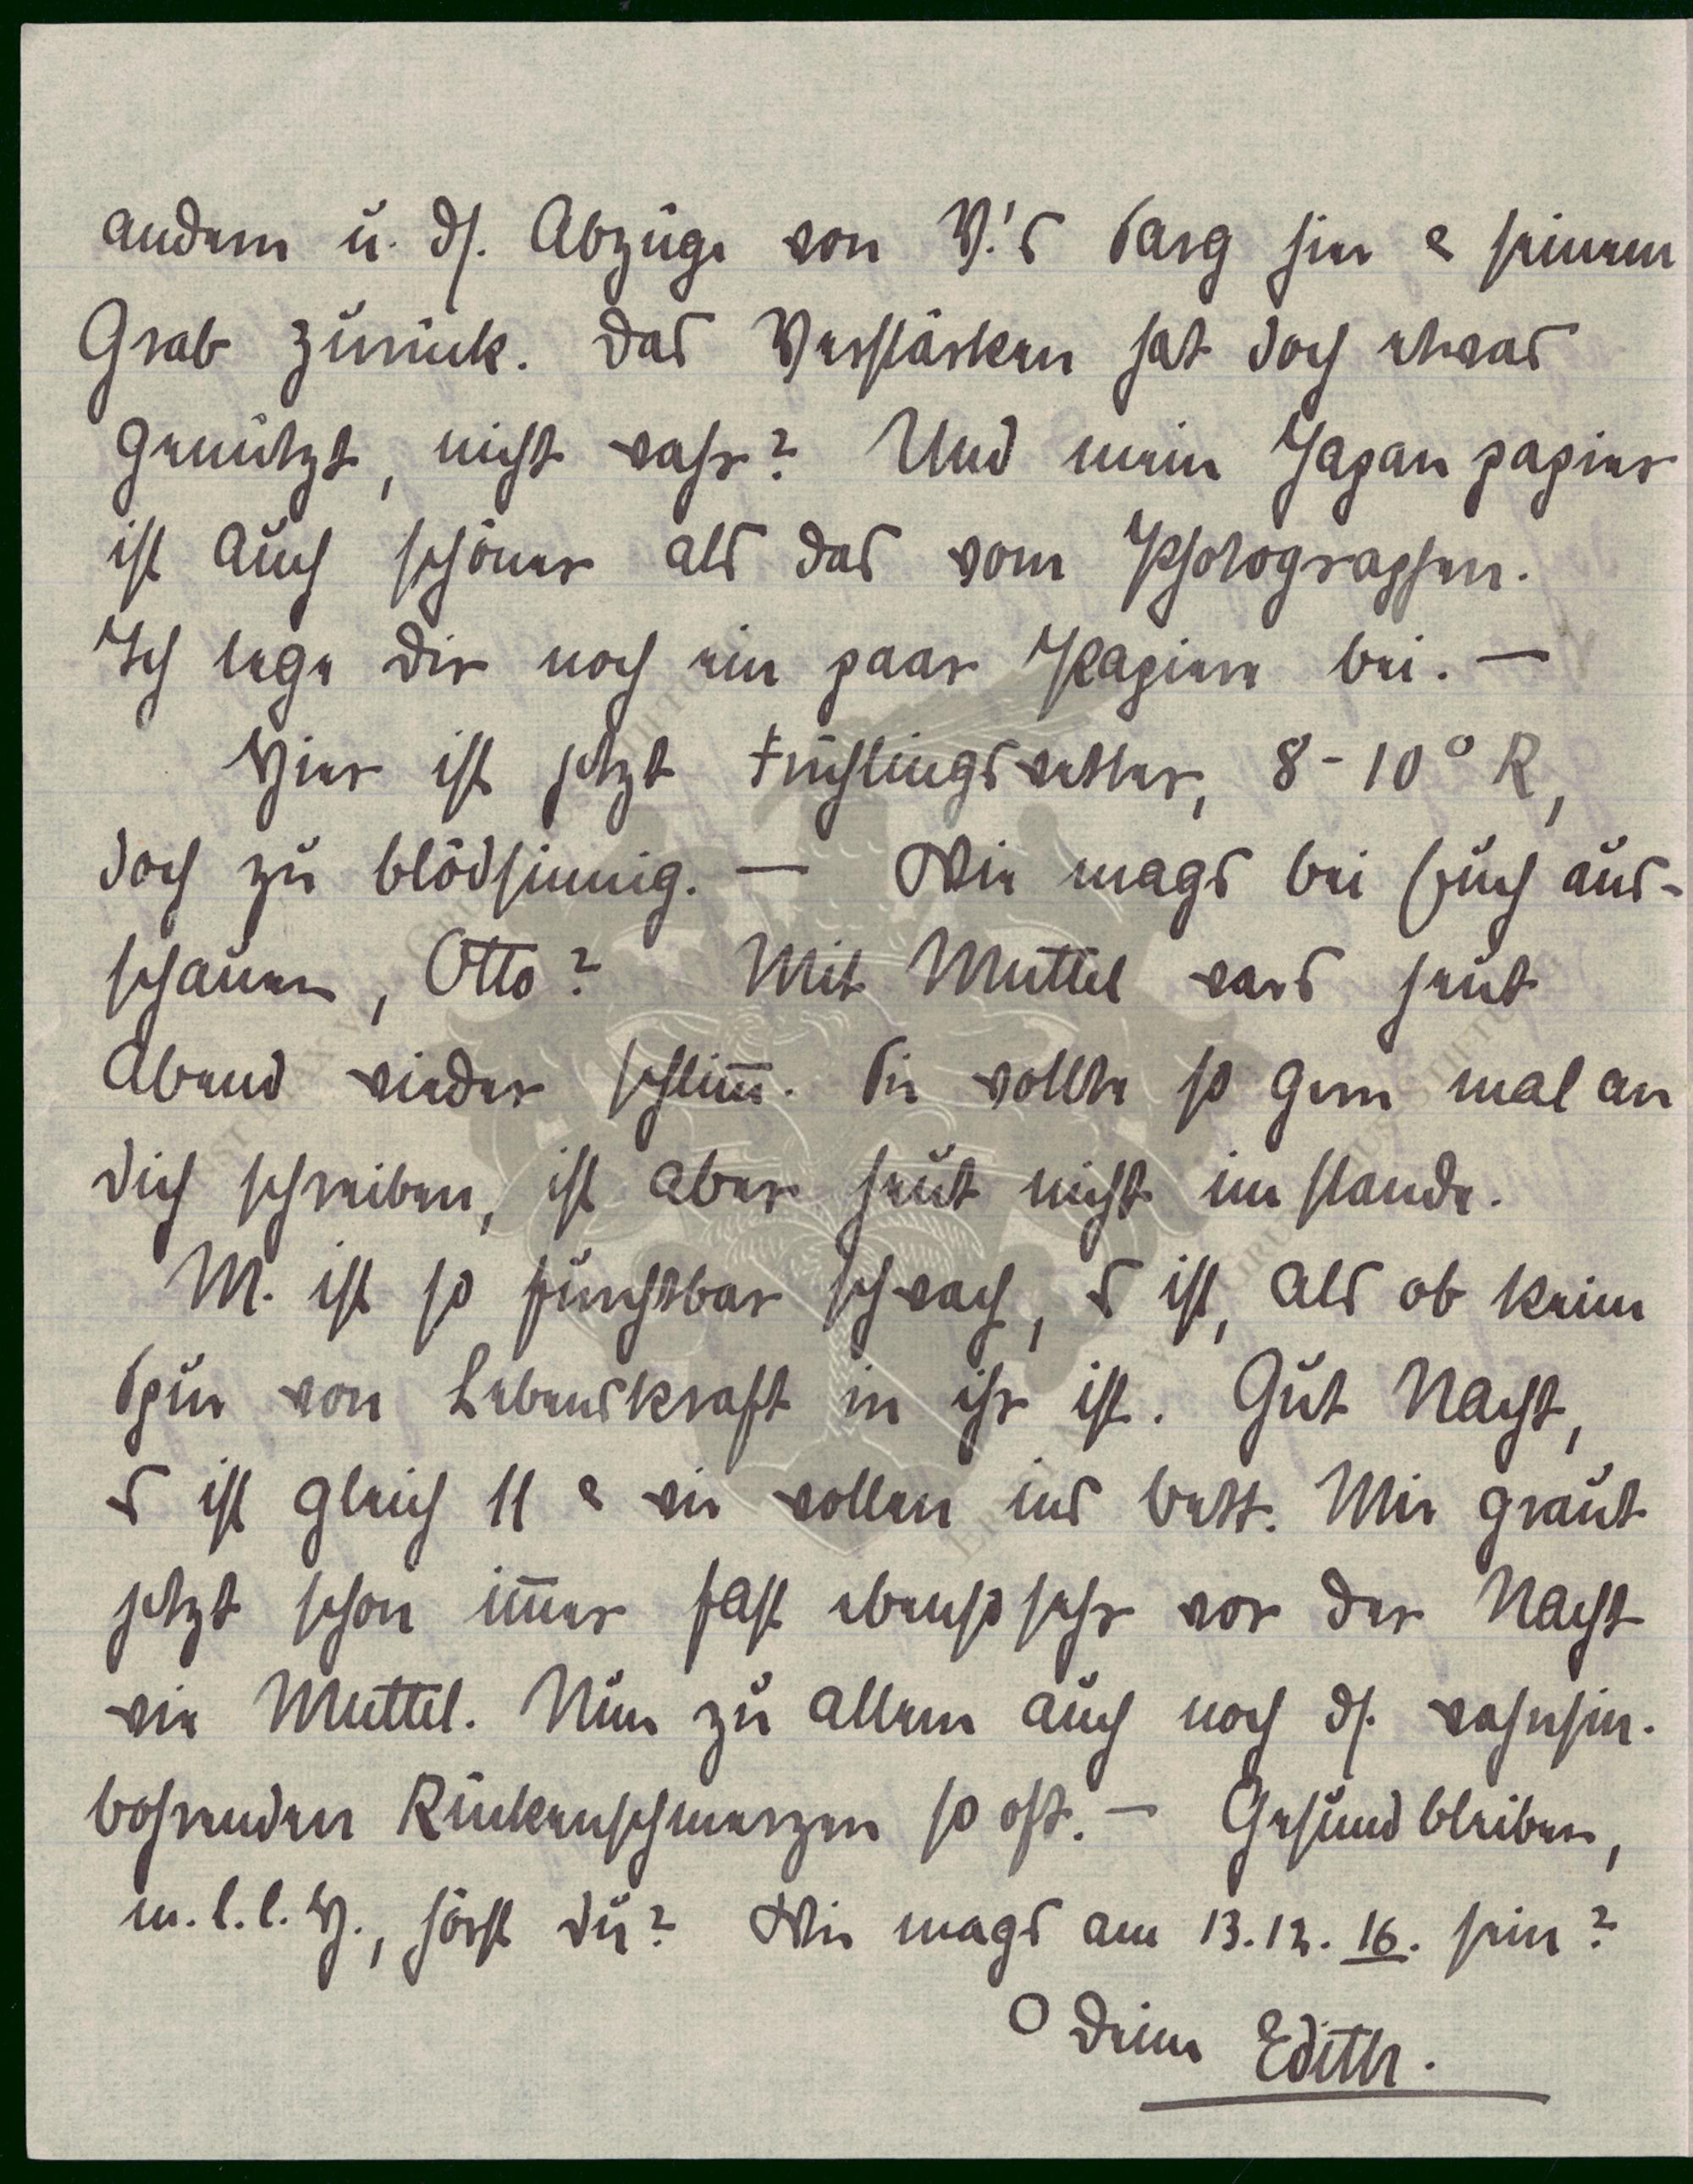 andern u. ds. Abzüge von V.'s Sarg hier & seinem
Grab zurück. Das Verstärken hat doch etwas
genützt, nicht wahr? Und mein Japanpapier
ist auch schöner als das vom Photographen.
Ich lege Dir noch ein paar Papiere bei. —
Hier ist jetzt Frühlingswetter, 8-10° R,
doch zu blödsinnig. — Wie mags bei Euch aus-
schauen, Otto? Mit Muttel wars heut
Abend wieder schlim̅. Sie wollte so gern mal an
Dich schreiben, ist aber heut nicht imstande.
M. ist so furchtbar schwach, s ist, als ob keine
Spur von Lebenskraft in ihr ist. Gut Nacht,
s ist gleich 11 & wir wollen ins Bett. Mir graut
jetzt schon im̅er fast ebenso sehr vor der Nacht
wie Muttel. Nun zu allem auch noch ds. wahnsin.
bohrenden Rückenschmerzen so oft. — Gesund bleiben,
m. l. l. H., hörst Du? Wie mags am 13.12.16. sein?
O Deine Edith.